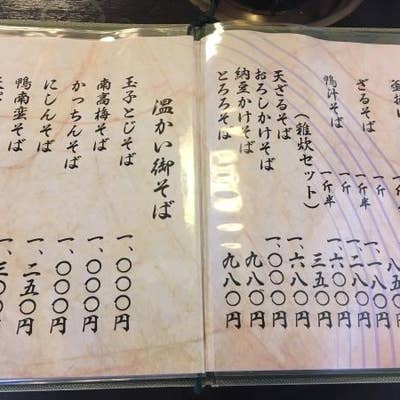 ざるそば 一斤
一斤半
鴨汁そば 一斤 一、二八〇円
一斤半 一、六〇〇円
（雑炊セット） 三五〇円
天ざるそば 一、六八〇円
おろしかけそば 一、〇〇〇円
納豆かけそば 九八〇円
とろろそば 九八〇円
温かい御そば
玉子とじそば 一、〇〇〇円
南高梅そば 一、〇〇〇円
かっちんそば 一、〇〇〇円
にしんそば 一、二五〇円
鴨南蛮そば 一、三〇〇円